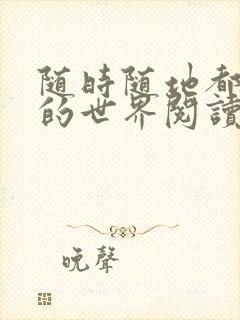 随時随地都
的世界閱讀
晚聲